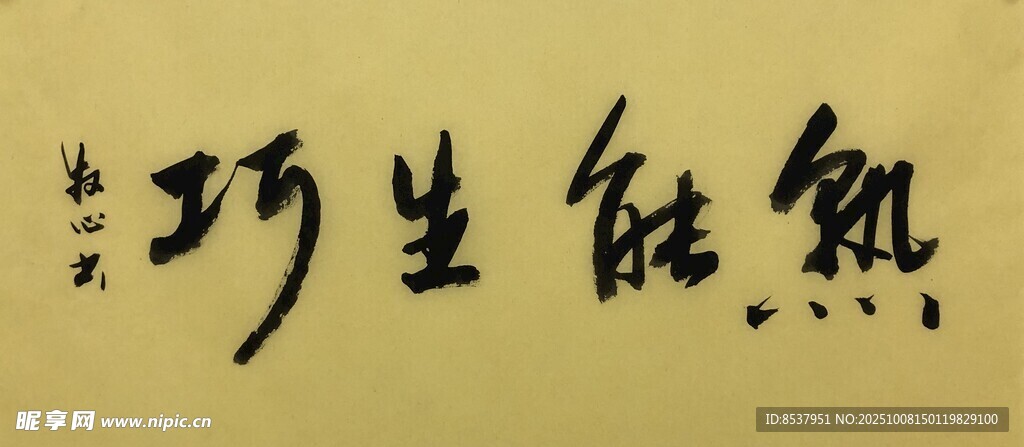 熟能生巧
牧心书
昵享网 www.nipic.cn
ID:8537951 NO:20251008150119829100